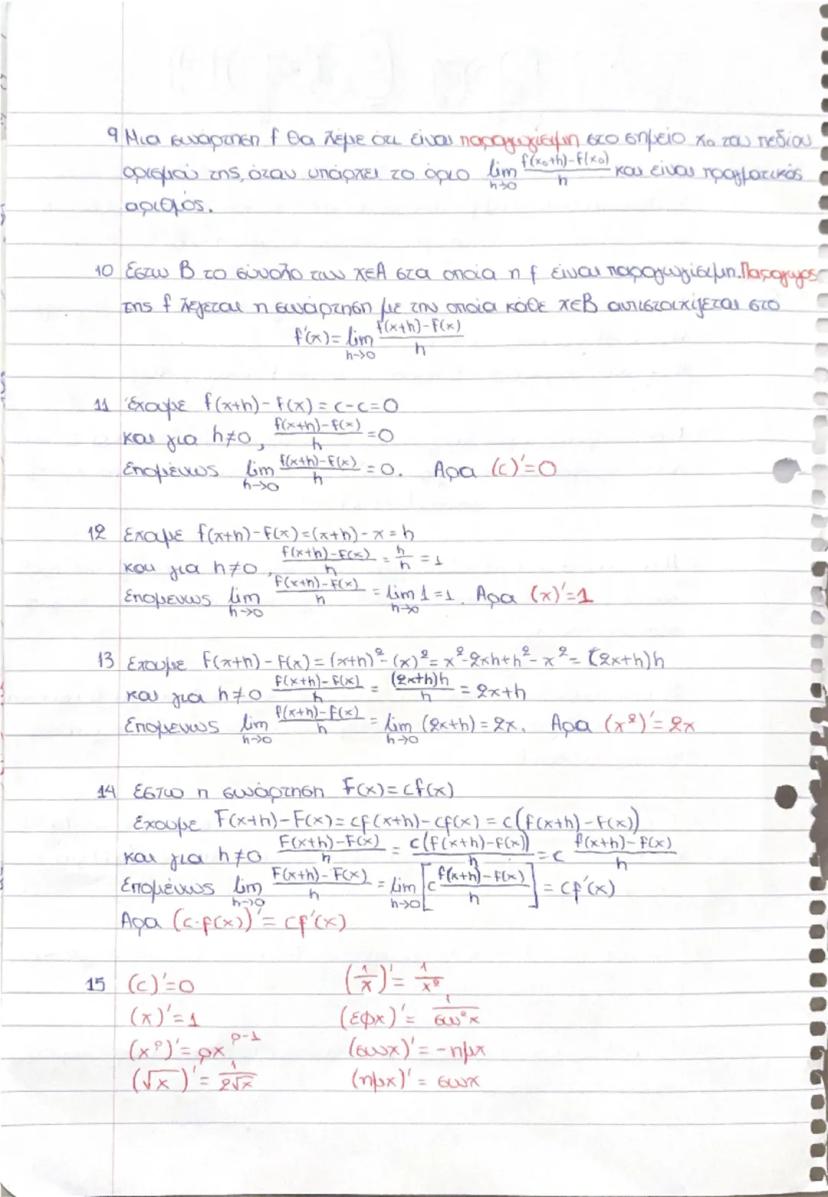 9 Μια συνάρτηση f θα λέμε ότι είναι παραγωγίσιμη στο σημείο x₀ του πεδίου
ορισμού της, όταν υπάρχει το όριο lim h→0 (f(x₀+h)-f(x₀))/h και είναι πραγματικός
αριθμός.
10 Έστω Β το σύνολο των x∈A στα οποία η f είναι παραγωγίσιμη. Παράγωγος
της f λέγεται η συνάρτηση με την οποία κάθε x∈B αντιστοιχίζεται στο
f'(x) = lim h→0 (f(x+h)-f(x))/h
11 Έχουμε f(x+h)-f(x) = c-c=0
και για h≠0, (f(x+h)-f(x))/h =0
Επομένως lim h→0 (f(x+h)-f(x))/h = 0. Άρα (c)'=0
12 Έχουμε f(x+h)-f(x)=(x+h)-x=h
και για h≠0, (f(x+h)-f(x))/h = h/h = 1
Επομενως lim h→0 (f(x+h)-f(x))/h = lim h→0 1 =1. Άρα (x)'=1
13 Εχουμε f(x+h)-f(x) = (x+h)²-(x)²= x²-2xh+h²-x²= (2x+h)h
και για h≠0 (f(x+h)-f(x))/h = ((2x+h)h)/h = 2x+h
Επομενως lim h→0 (f(x+h)-f(x))/h = lim h→0 (2x+h) = 2x. Άρα (x²)'= 2x
14 Έστω η συνάρτηση F(x)=cf(x)
Εχουμε F(x+h)-F(x)=cf(x+h)-cf(x) = c(f(x+h)-f(x))
και για h≠0 (F(x+h)-F(x))/h = (c(f(x+h)-f(x)))/h = c (f(x+h)-f(x))/h
Επομένως lim h→0 (F(x+h)-F(x))/h = lim h→0 [c (f(x+h)-f(x))/h] = cf'(x)
Αρα (c·f(x))'= cf'(x)
15 (c)'=0 (1/x)'= 1/x²
(x)'=1 (εφx)'= 1/συν²x
(x^ρ)'= ρx^ρ-1 (συνx)'= -ημx
(√x)'= 1/2√x (ημx)' = συνx